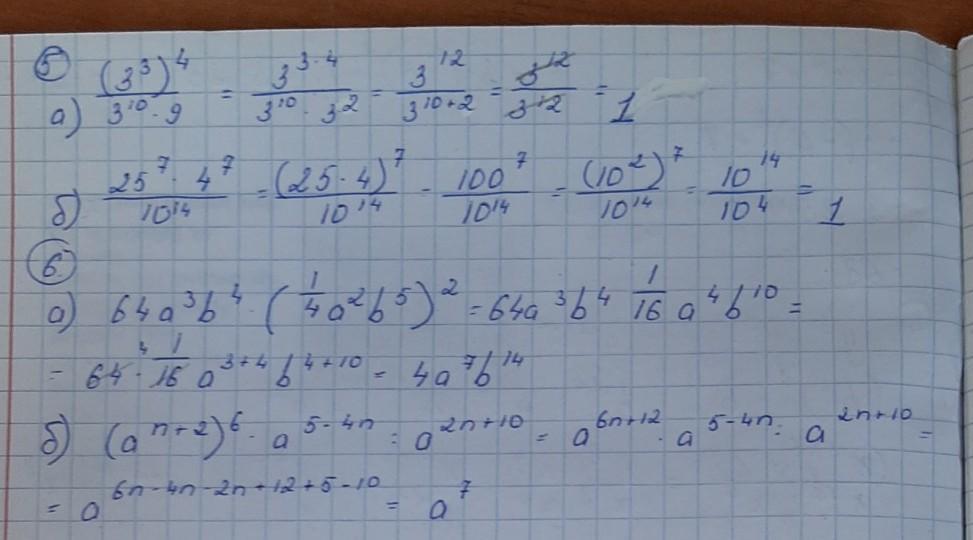 5
а) (3³)⁴ / 3¹⁰ · 9 = 3³·⁴ / 3¹⁰ · 3² = 3¹² / 3¹⁰⁺² = 3¹² / 3¹² = 1
б) 25⁷ · 4⁷ / 10¹⁴ = (25 · 4)⁷ / 10¹⁴ - 100⁷ / 10¹⁴ = (10²)⁷ / 10¹⁴ = 10¹⁴ / 10⁴ = 1
6
а) 64a³b⁴ · (1/4 a²b⁵)² = 64a³b⁴ 1/16 a⁴b¹⁰ =
= 64 · ⁴ 1/16 a³⁺⁴b⁴⁺¹⁰ = 4a⁷b¹⁴
б) (aⁿ⁺²)⁶ · a⁵⁻⁴ⁿ : a²ⁿ⁺¹⁰ = a⁶ⁿ⁺¹² · a⁵⁻⁴ⁿ : a²ⁿ⁺¹⁰ =
= a⁶ⁿ⁻⁴ⁿ⁻²ⁿ⁺¹²⁺⁵⁻¹⁰ = a⁷